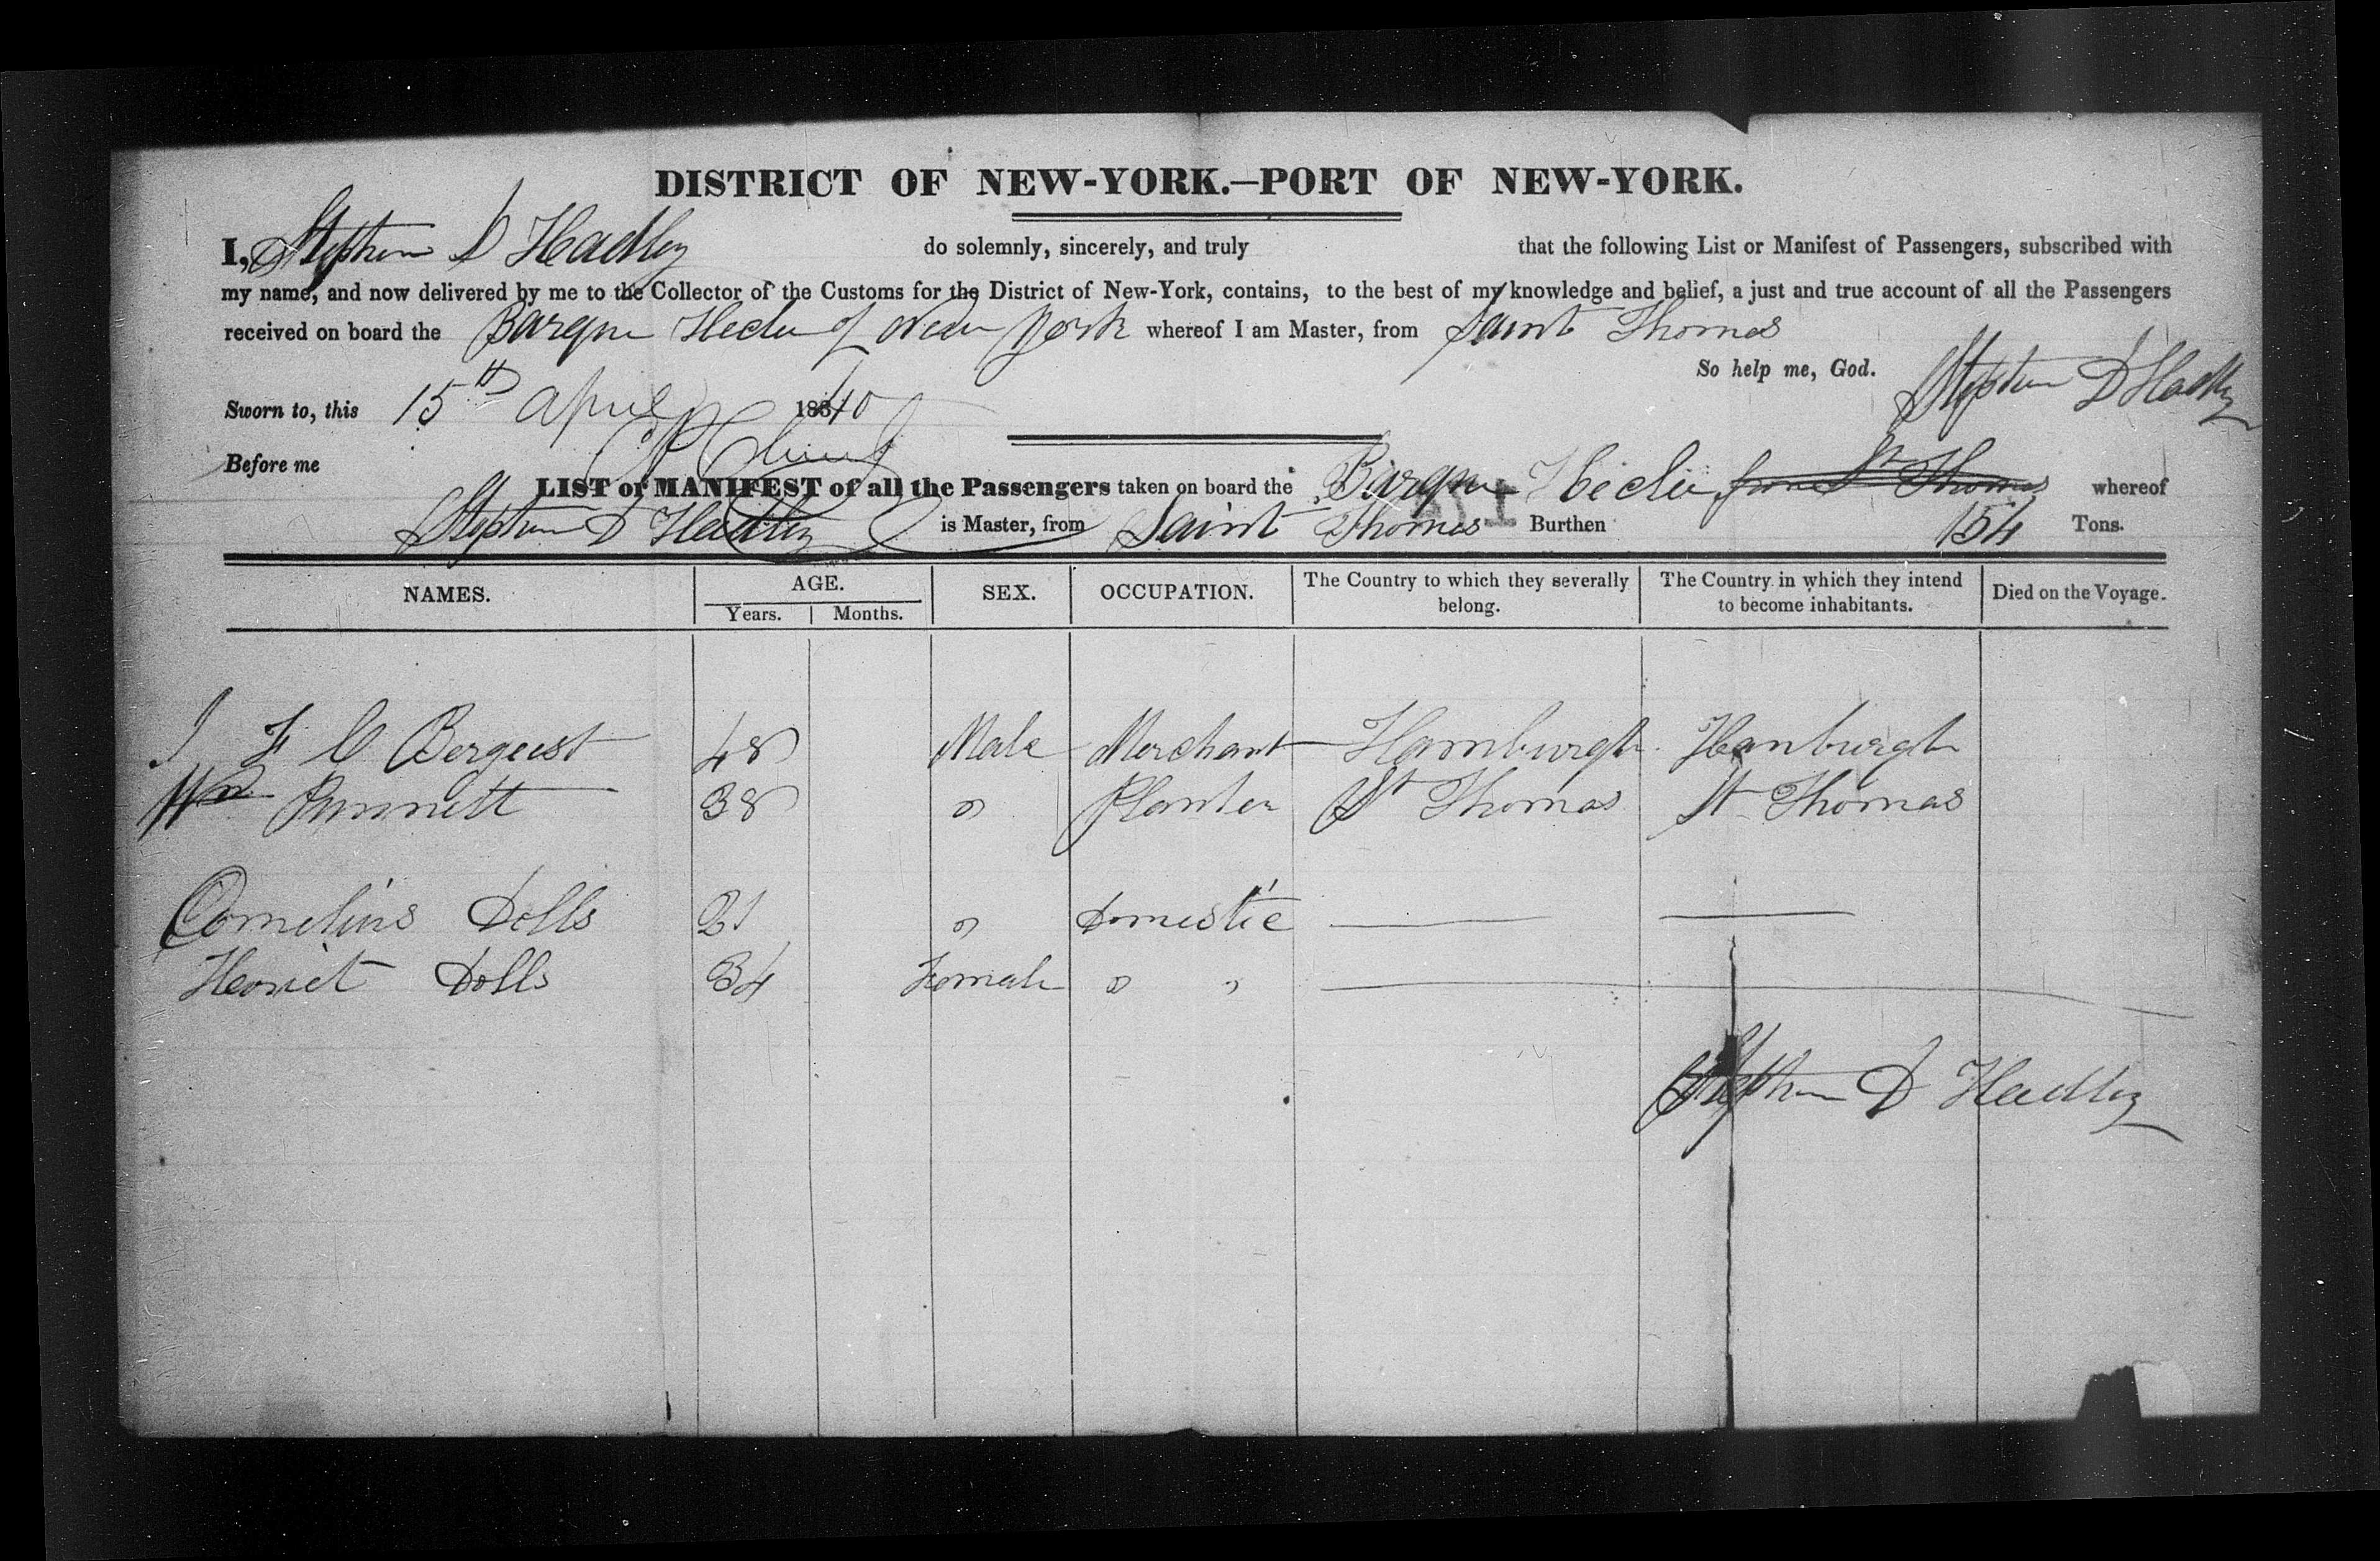 DISTRICT OF NEW-YORK.—PORT OF NEW-YORK.
I, Stephen D Hadley do solemnly, sincerely, and truly that the following List or Manifest of Passengers, subscribed with
my name, and now delivered by me to the Collector of the Customs for the District of New-York, contains, to the best of my knowledge and belief, a just and true account of all the Passengers
received on board the Barque Hecla of New York whereof I am Master, from Saint Thomas
So help me, God. Stephen D Hadley
Sworn to, this 15th April 1840
Before me
LIST or MANIFEST of all the Passengers taken on board the Barque Hecla from St Thomas whereof
Stephen D Hadley is Master, from Saint Thomas Burthen 154 Tons.
NAMES. AGE. SEX. OCCUPATION. The Country to which they severally belong. The Country in which they intend to become inhabitants. Died on the Voyage.
Years. Months.
J F C Bergeest 48 Male Merchant Hamburgh Hanburgh
Wm 38 " Planter St Thomas St Thomas
Cornelius Dolls 21 " Domestic
Hariet Dolls 34 Female " "
Stephen D Hadley